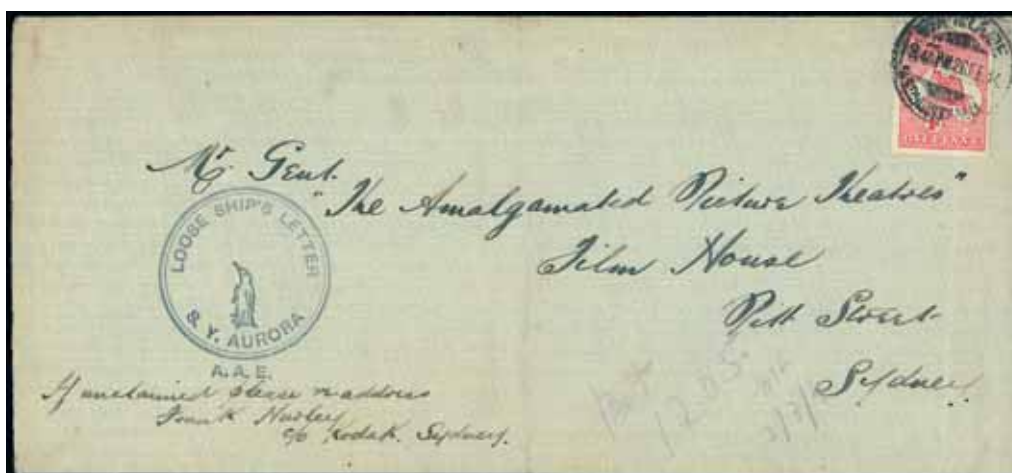 Mr. Gent.
"The Amalgamated Picture Theatres"
Film House
Pitt Street
Sydney
LOOSE SHIP'S LETTER
S. Y. AURORA
A.A.E.
If unclaimed please readdress
Frank Hurley
c/o Kodak. Sydney.
ONE PENNY